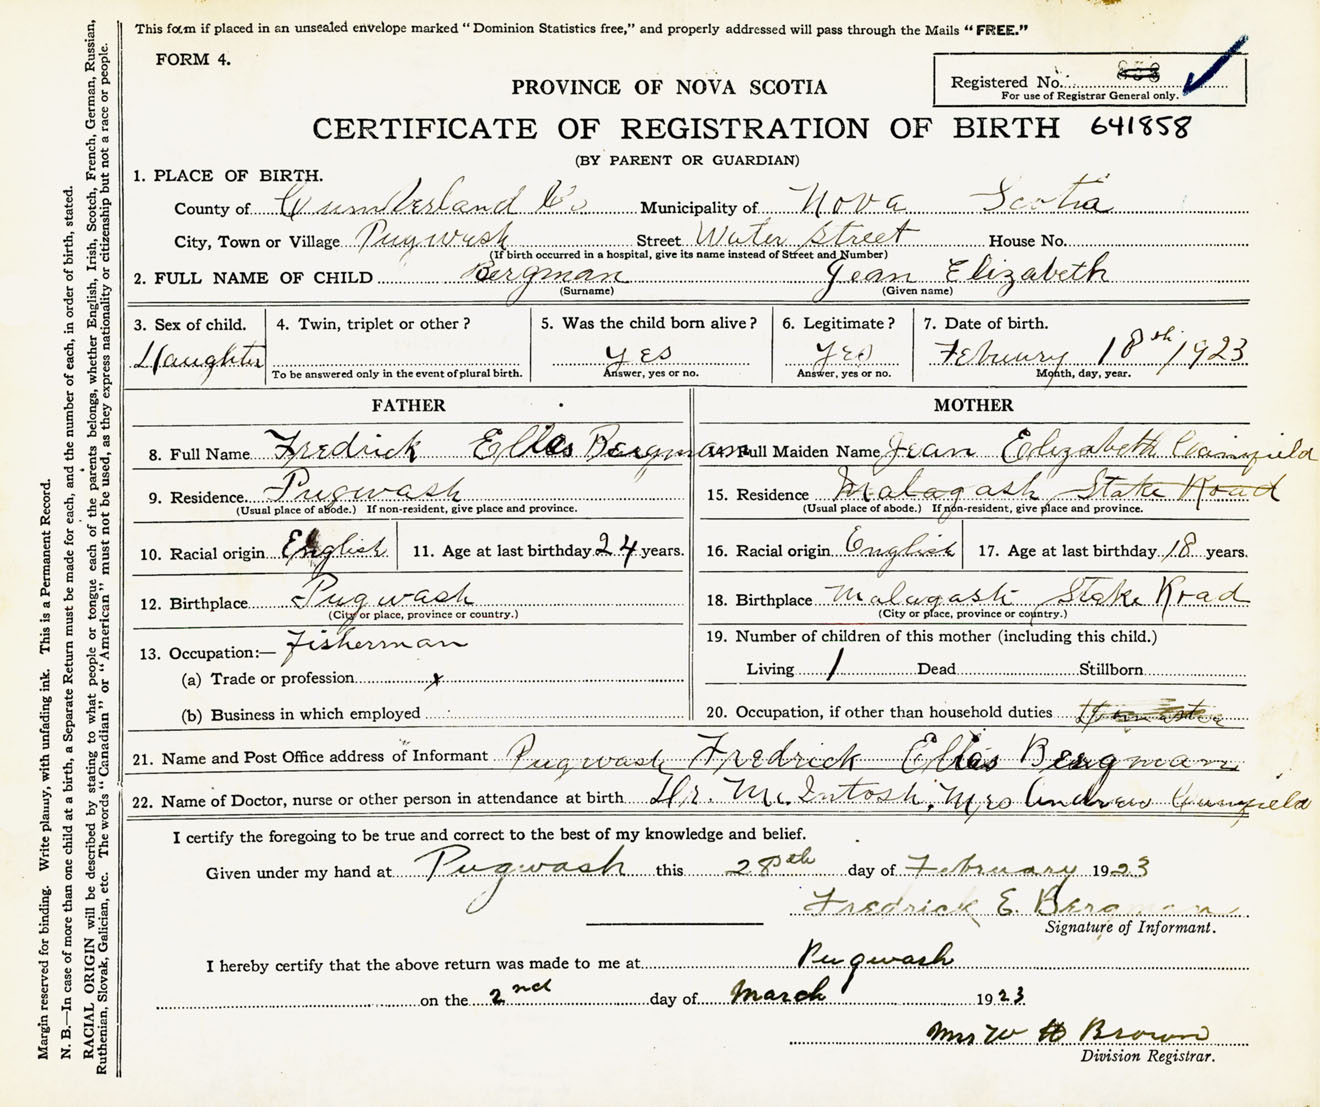 This form if placed in an unsealed envelope marked "Dominion Statistics free," and properly addressed will pass through the Mails "FREE."
FORM 4.
Registered No.
For use of Registrar General only.
PROVINCE OF NOVA SCOTIA
CERTIFICATE OF REGISTRATION OF BIRTH 641858
(BY PARENT OR GUARDIAN)
1. PLACE OF BIRTH.
County of Cumberland Co Municipality of Nova Scotia
City, Town or Village Pugwash Street Water Street House No.
(If birth occurred in a hospital, give its name instead of Street and Number)
2. FULL NAME OF CHILD Bergman Jean Elizabeth
(Surname) (Given name)
3. Sex of child. 4. Twin, triplet or other? 5. Was the child born alive? 6. Legitimate? 7. Date of birth.
Daughter yes yes February 18th 1923
To be answered only in the event of plural birth. Answer, yes or no. Answer, yes or no. Month, day, year.
FATHER MOTHER
8. Full Name Fredrick Ellis Bergman 14. Full Maiden Name Jean Elizabeth Canfield
9. Residence Pugwash 15. Residence Malagash Stake Road
(Usual place of abode.) If non-resident, give place and province. (Usual place of abode.) If non-resident, give place and province.
10. Racial origin English 11. Age at last birthday 24 years. 16. Racial origin English 17. Age at last birthday 18 years.
12. Birthplace Pugwash 18. Birthplace Malagash Stake Road
(City or place, province or country.) (City or place, province or country.)
13. Occupation:— Fisherman 19. Number of children of this mother (including this child.)
(a) Trade or profession x Living 1 Dead Stillborn
(b) Business in which employed 20. Occupation, if other than household duties
21. Name and Post Office address of Informant Pugwash Fredrick Ellis Bergman
22. Name of Doctor, nurse or other person in attendance at birth Dr. McIntosh, Mrs Andrew Canfield
I certify the foregoing to be true and correct to the best of my knowledge and belief.
Given under my hand at Pugwash this 28th day of February 1923
Fredrick E. Bergman
Signature of Informant.
I hereby certify that the above return was made to me at Pugwash
on the 2nd day of March 1923
Mrs W H Brown
Division Registrar.
Margin reserved for binding. Write plainly, with unfading ink. This is a Permanent Record.
N. B.—In case of more than one child at a birth, a Separate Return must be made for each, and the number of each, in order of birth, stated.
RACIAL ORIGIN will be described by stating to what people or tongue each of the parents belongs, whether English, Irish, Scotch, French, German, Russian,
Ruthenian, Slovak, Galician, etc. The words "Canadian" or "American" must not be used, as they express nationality or citizenship but not a race or people.